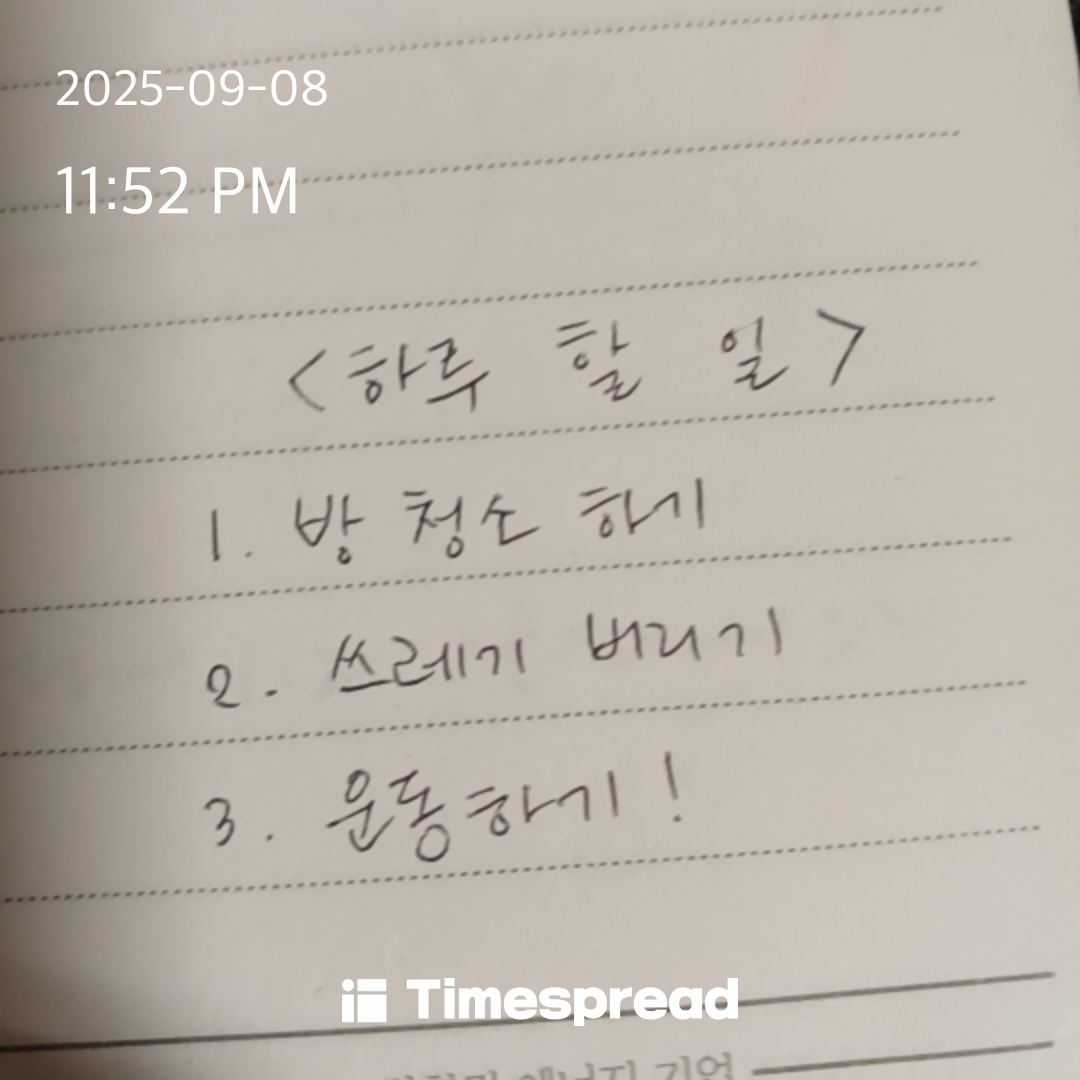 2025-09-08
11:52 PM
<하루 할 일>
1. 방 청소 하기
2. 쓰레기 버리기
3. 운동하기!
Timespread
에너지 기업